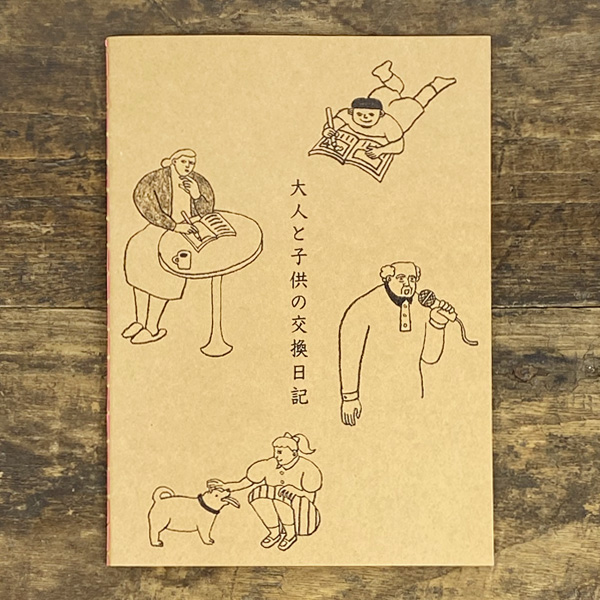 大人と子供の交換日記